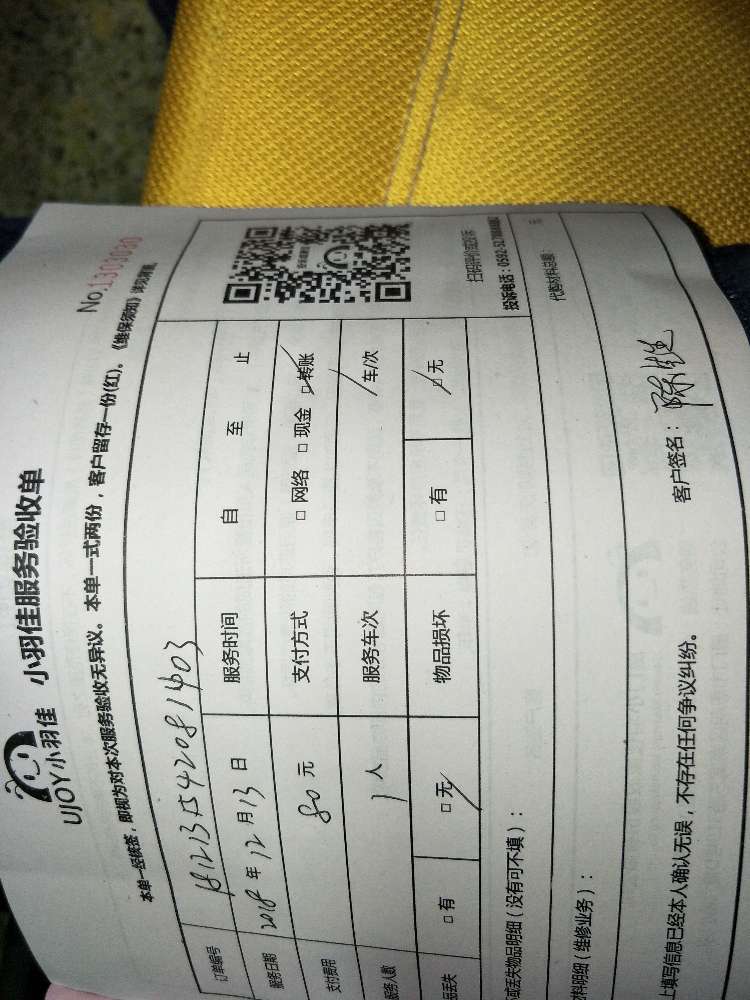 UJOY小羽佳 小羽佳服务验收单
No.
本单一经核签，即视为对本次服务验收无异议。本单一式两份，客户留存一份(红)。《维保须知》详见背面
订单编号
服务日期 2018 年 12 月 13 日 服务时间 自 至 止
支付费用 80 元 支付方式 □ 网络 □ 现金 □ 转账
服务人数 1 人 服务车次 车/次
品丢失 □ 有 □ 无 物品损坏 □ 有 □ 无
或丢失物品明细（没有可不填）：
材料明细（维修业务）：
代购材料总额：
上填写信息已经本人确认无误，不存在任何争议纠纷。
客户签名：
扫码评价或投诉